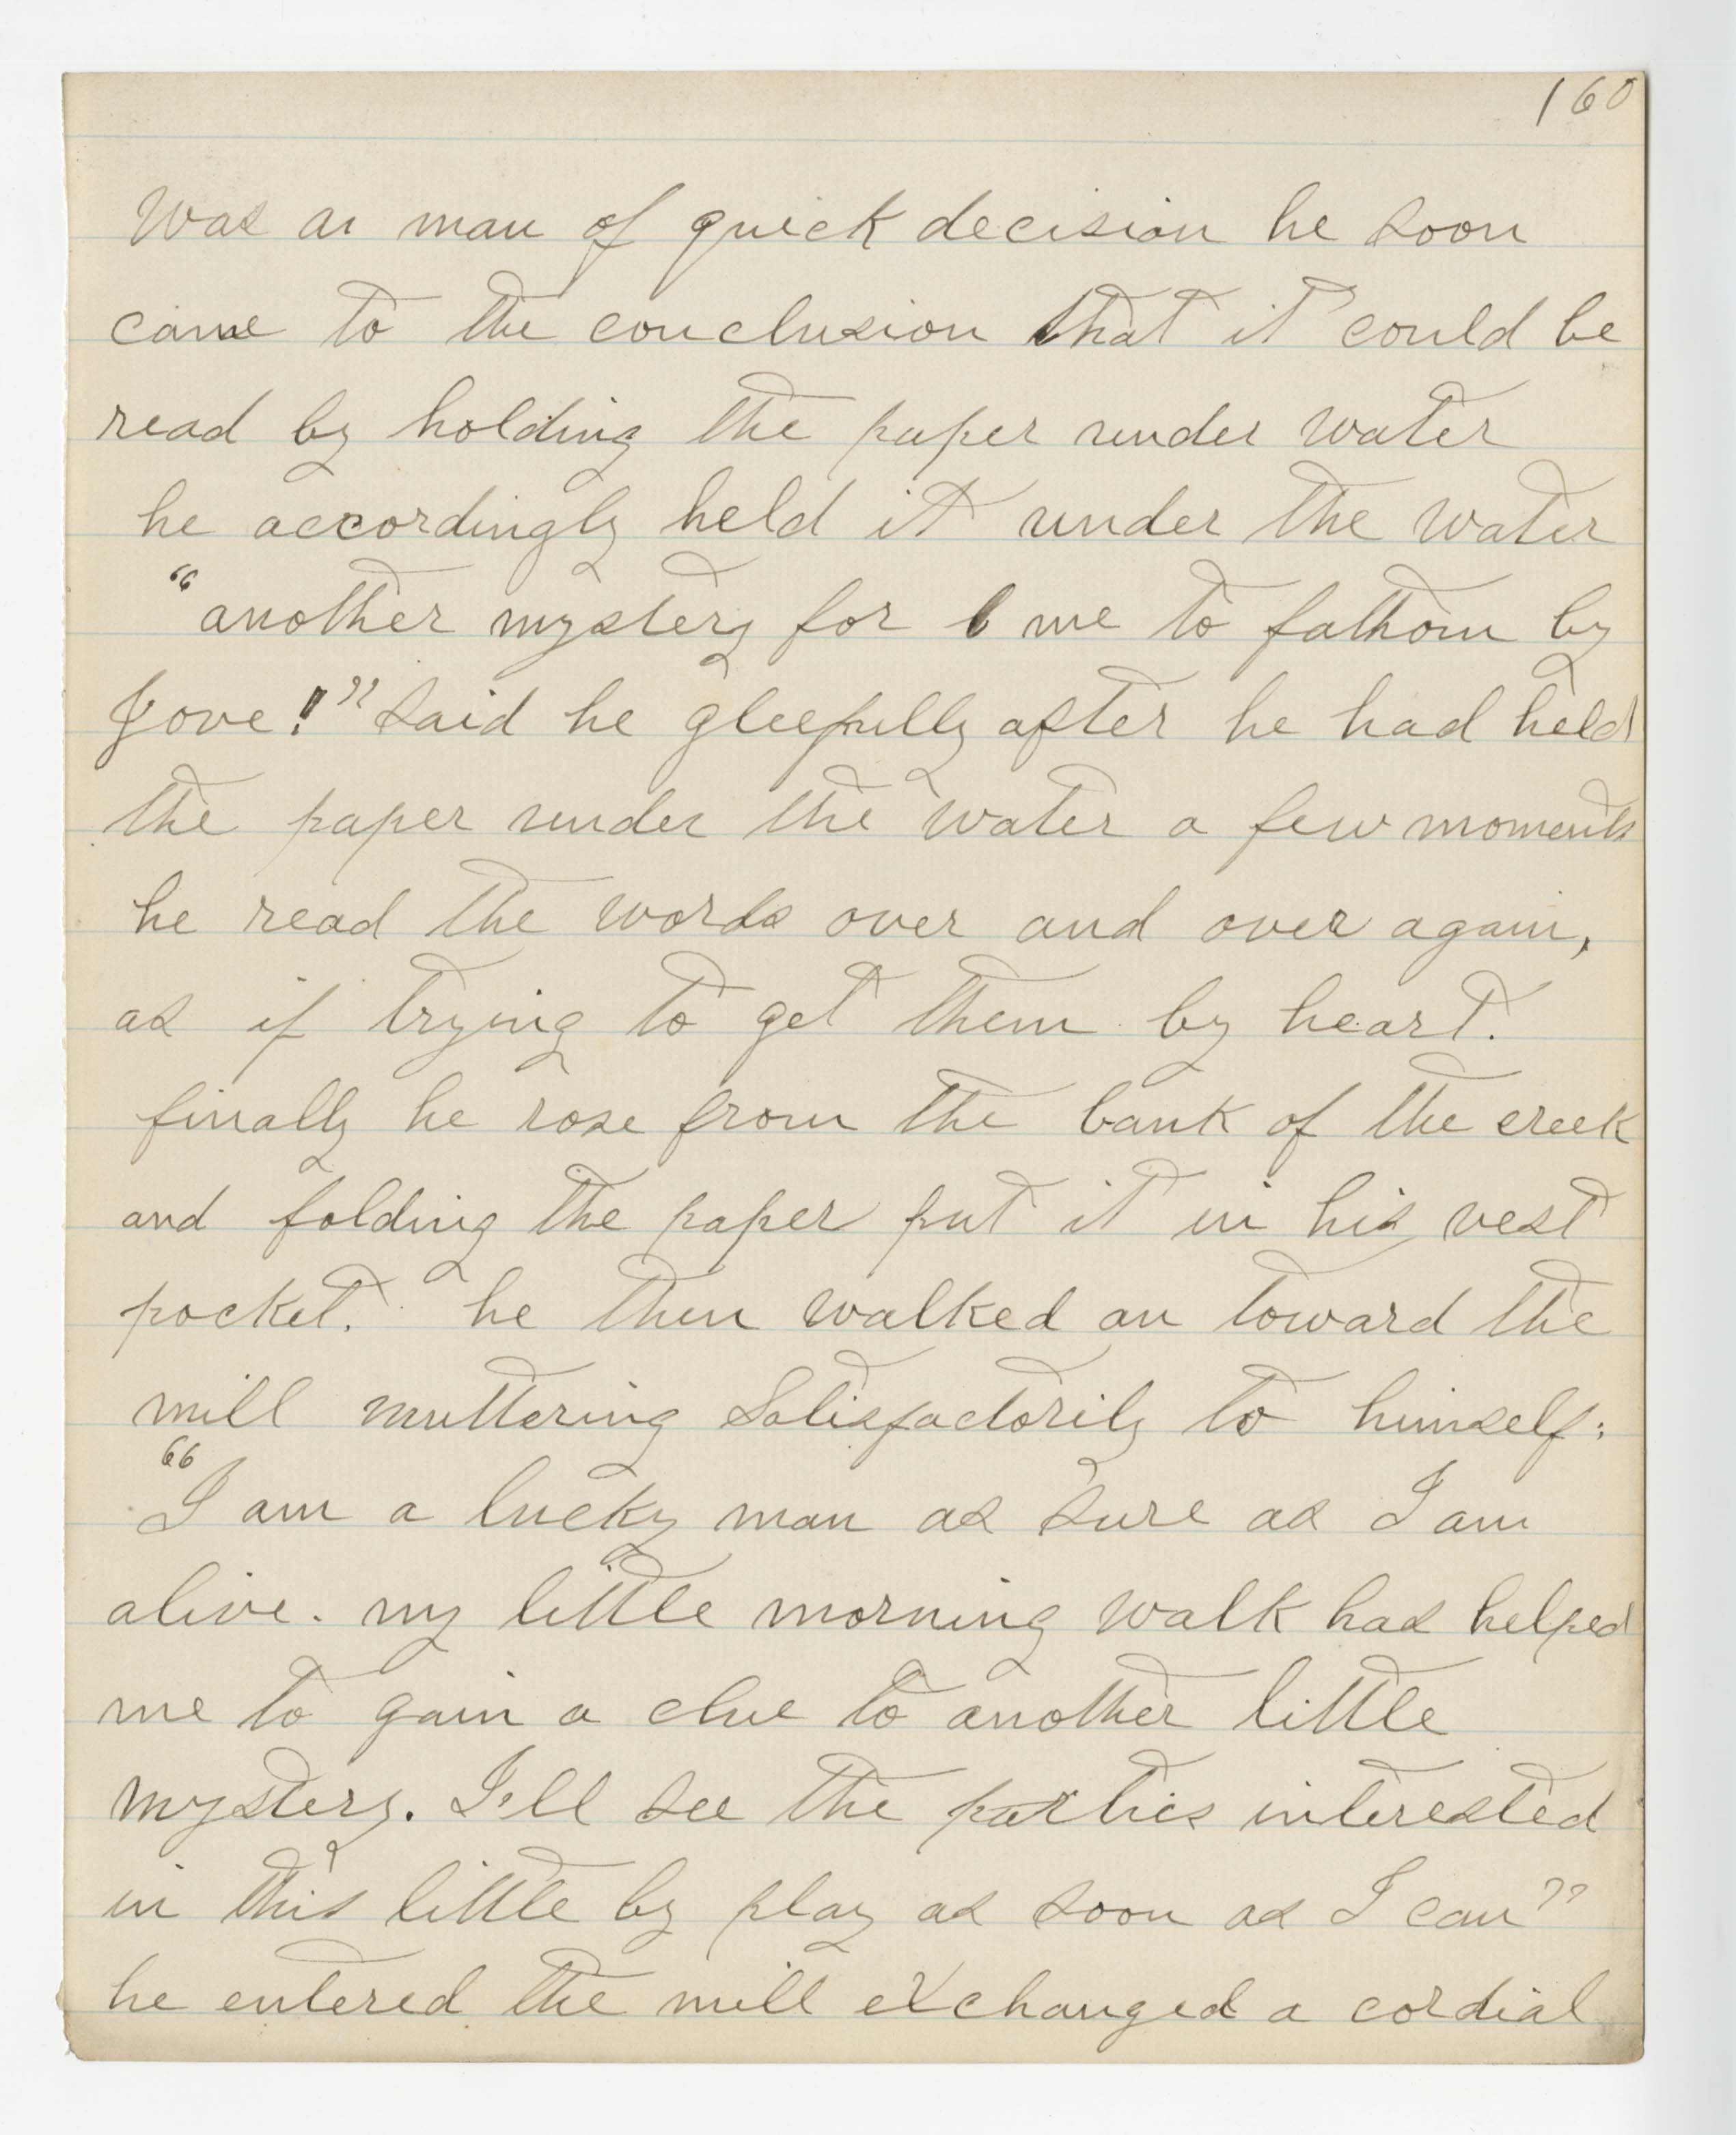 160
Was a man of quick decision he soon
came to the conclusion that it could be
read by holding the paper under water
he accordingly held it under the water
"another mystery for me to fathom by
Jove!" said he gleefully after he had held
the paper under the water a few moments
he read the words over and over again,
as if trying to get them by heart.
finally he rose from the bank of the creek
and folding the paper put it in his vest
pocket. he then walked on toward the
mill muttering Satisfactorily to himself:
"I am a lucky man as sure as I am
alive. my little morning walk has helped
me to gain a clue to another little
mystery. I'll see the parties interested
in this little by play as soon as I can"
he entered the mill exchanged a cordial